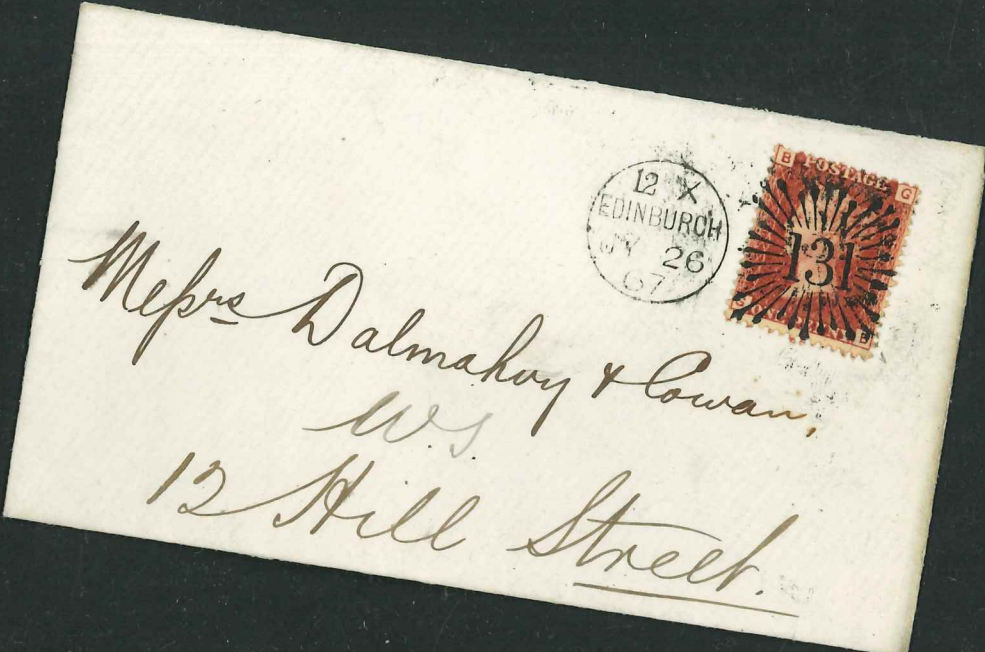 12 X
EDINBURGH
JY 26
67
B POSTAGE G
131
G ONE PENNY B
Meſsrs Dalmahoy & Cowan,
W.S.
12 Hill Street.